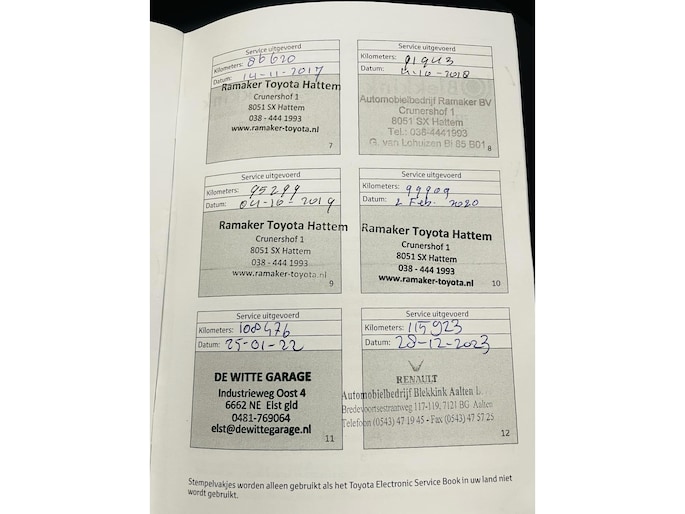 Service uitgevoerd
Kilometers: 86620
Datum: 14-11-2017
Ramaker Toyota Hattem
Crunershof 1
8051 SX Hattem
038 - 444 1993
www.ramaker-toyota.nl
7
Service uitgevoerd
Kilometers: 91943
Datum: -10-2018
Automobielbedrijf Ramaker BV
Crunershof 1
8051 SX Hattem
Tel.: 038-4441993
G. van Lohuizen Bl 85 B01
8
Service uitgevoerd
Kilometers: 95299
Datum: 04-10-2019
Ramaker Toyota Hattem
Crunershof 1
8051 SX Hattem
038 - 444 1993
www.ramaker-toyota.nl
9
Service uitgevoerd
Kilometers: 99909
Datum: 2 Feb. 2020
Ramaker Toyota Hattem
Crunershof 1
8051 SX Hattem
038 - 444 1993
www.ramaker-toyota.nl
10
Service uitgevoerd
Kilometers: 108476
Datum: 25-01-22
DE WITTE GARAGE
Industrieweg Oost 4
6662 NE Elst gld
0481-769064
elst@dewittegarage.nl
11
Service uitgevoerd
Kilometers: 115923
Datum: 28-12-2023
RENAULT
Automobielbedrijf Blekkink Aalten
Bredevoortsestraatweg 117-119, 7121 BG Aalten
Telefoon (0543) 47 19 45 - Fax (0543) 47 57 25
12
Stempelvakjes worden alleen gebruikt als het Toyota Electronic Service Book in uw land niet
wordt gebruikt.